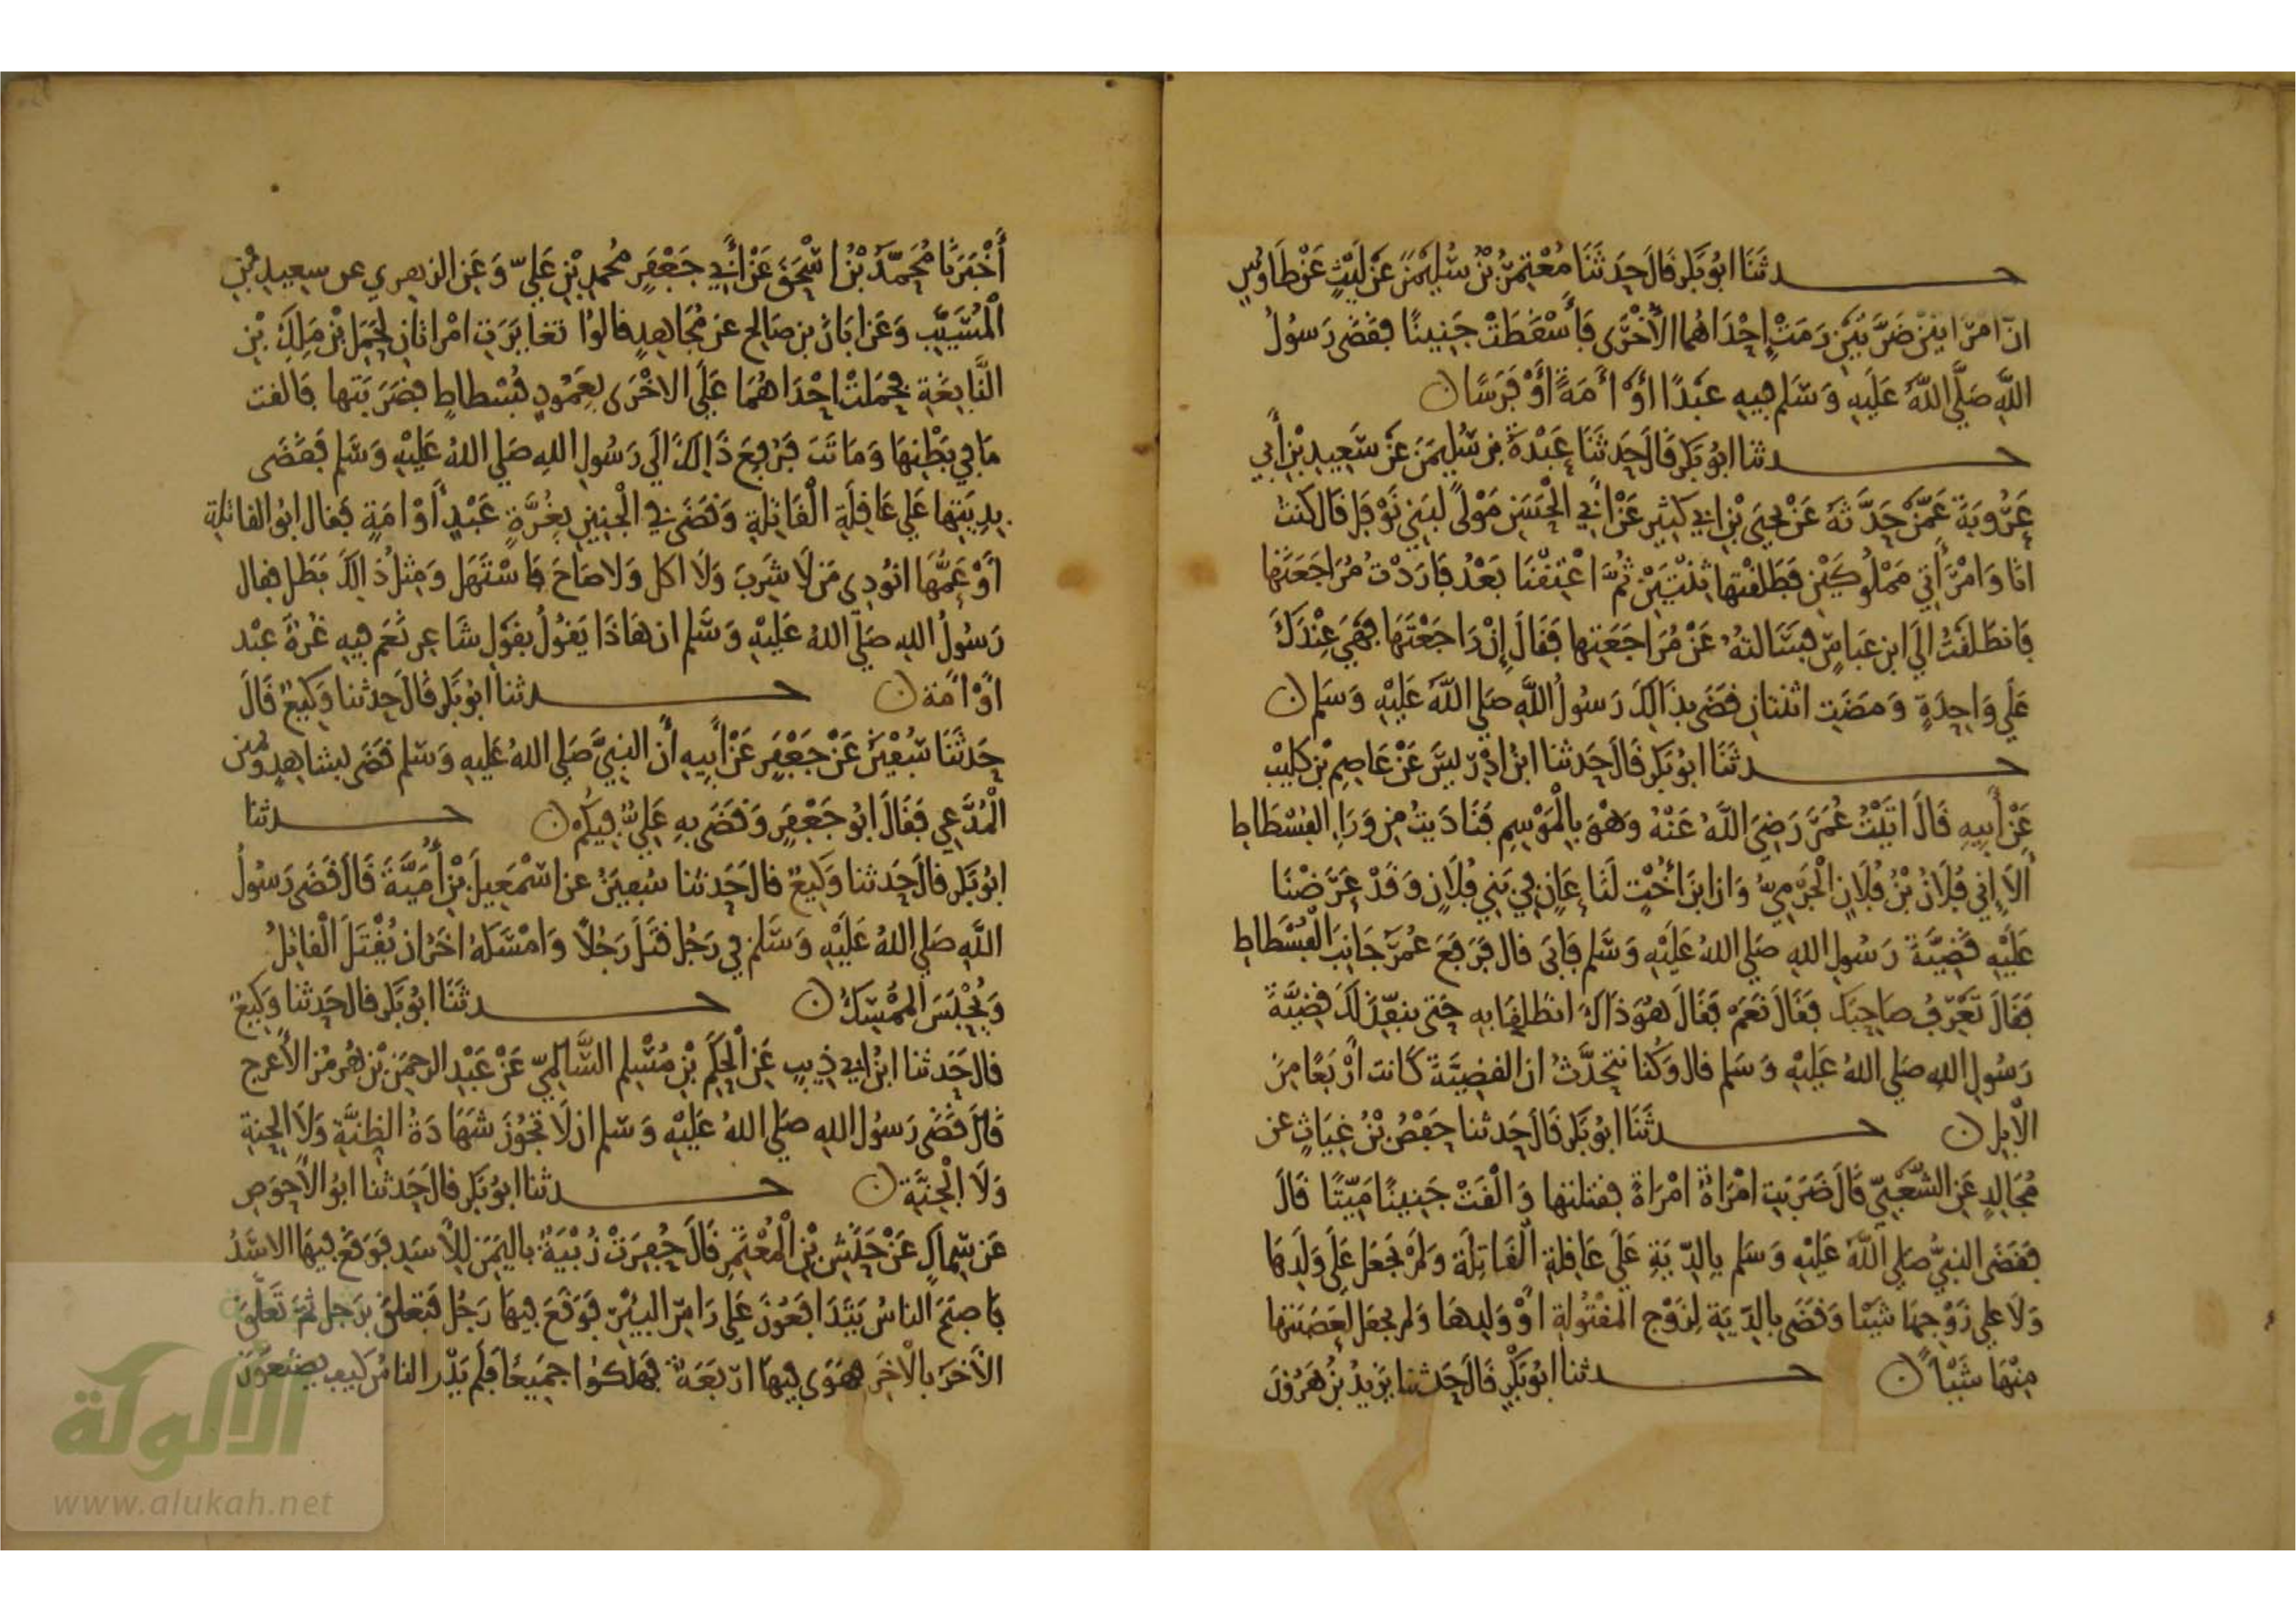 حـدثنا ابو بكر قال حدثنا معتمر بن سليمن عن ليث عن طاوس
ان امراتين ضرتين رمت احداهما الاخرى فاسقطت جنينا فقضى رسول
الله صلى الله عليه وسلم فيه عبدا او امة او فرسا ن
حـدثنا ابو بكر قال حدثنا عبدة بن سليمن عن سعيد بن أبي
عروبة عمن حدثه عن يحيى بن ابي كثير عن ابي الحسن مولى لبني نوفل قال كنت
انا وامرأتي مملوكين فطلقتها ثنتين ثم اعتقنا بعد فاردت مراجعتها
فانطلقت الي ابن عباس فسالته عن مراجعتها فقال إن راجعتها فهي عندك
علي واحدة ومضت اثنتان قضى بذالك رسول الله صلي الله عليه وسلم ن
حـدثنا ابو بكر قال حدثنا ابن ادريس عن عاصم بن كليب
عن أبيه قال اتيت عمر رضي الله عنه وهو بالموسم فناديت من وراء الفسطاط
ألا إني فلان بن فلان الجرمي وان ابن أخت لنا عان في بني فلان وقد عرضنا
عليه قضية رسول الله صلي الله عليه وسلم فابى قال فرفع عمر جانب الفسطاط
فقال تعرف صاحبك فقال نعم فقال هو ذاك انطلقا به حتى ينفذ لك قضية
رسول الله صلي الله عليه وسلم قال وكنا نتحدث ان القضية كانت أربعا من
الابل ن حـدثنا ابو بكر قال حدثنا حفص بن غياث عن
مجالد عن الشعبي قال ضربت امراة امراة فقتلتها والقت جنينا ميتا قال
فقضى النبي صلي الله عليه وسلم بالدية علي عاقلة القاتلة ولم يجعل على ولدها
ولا علي زوجها شيئا وقضى بالدية لزوج المقتولة او ولدها ولم يجعل لعصبتها
منها شيئا ن حـدثنا ابو بكر قال حدثنا يزيد بن هرون
أخبرنا محمد بن اسحق عن أبي جعفر محمد بن علي وعن الزهري عن سعيد بن
المسيب وعن ابان بن صالح عن مجاهد قالوا تغايرت امراتان لحمل بن ملك بن
النابغة فحملت احداهما علي الاخرى بعمود فسطاط فضربتها فالقت
ما في بطنها وماتت فرفع ذالك الي رسول الله صلي الله عليه وسلم فقضى
بديتها علي عاقلة القاتلة وقضى في الجنين بغرة عبد أو امة فقال ابو القاتلة
او عمها انودى من لا شرب ولا اكل ولا صاح فاستهل ومثل ذالك بطل فقال
رسول الله صلي الله عليه وسلم ان هاذا يقول بقول شاعر نعم فيه غرة عبد
او امة ن حـدثنا ابو بكر قال حدثنا وكيع قال
حدثنا سفين عن جعفر عن أبيه أن النبي صلي الله عليه وسلم قضى بشاهد ويمين
المدعي فقال ابو جعفر وقضى به علي فيكم ن حـدثنا
ابو بكر قال حدثنا وكيع قال حدثنا سفين عن اسمعيل بن أمية قال قضى رسول
الله صلي الله عليه وسلم في رجل قتل رجلا وامسكه اخر ان يقتل القاتل
ويحبس الممسك ن حـدثنا ابو بكر قال حدثنا وكيع
قال حدثنا ابن ابي ذيب عن الحكم بن مسلم السالمي عن عبد الرحمن بن هرمز الأعرج
قال قضى رسول الله صلي الله عليه وسلم ان لا تجوز شهادة الظنة ولا الحنة
ولا الجنة ن حـدثنا ابو بكر قال حدثنا ابو الاحوص
عن سماك عن حنش بن المعتمر قال حفرت زبية باليمن للأسد فوقع فيها الاسد
فاصبح الناس يتدافعون علي راس البير فوقع فيها رجل فتعلق برجل ثم تعلق
الآخر بالاخر فهوى فيها اربعة فهلكوا جميعا فلم يدر الناس كيف يصنعون
الألوكة
www.alukah.net